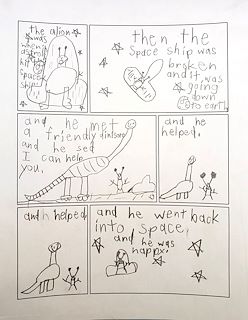 the alion
was
when a
hit
space
ship
then the
Space ship was
broken
and it was
going
down
to earth
and he met
a friendly dinosore
and he sed
I can help
you.
and he
helped.
and h helped
and he went back
into space,
and he was
happy.